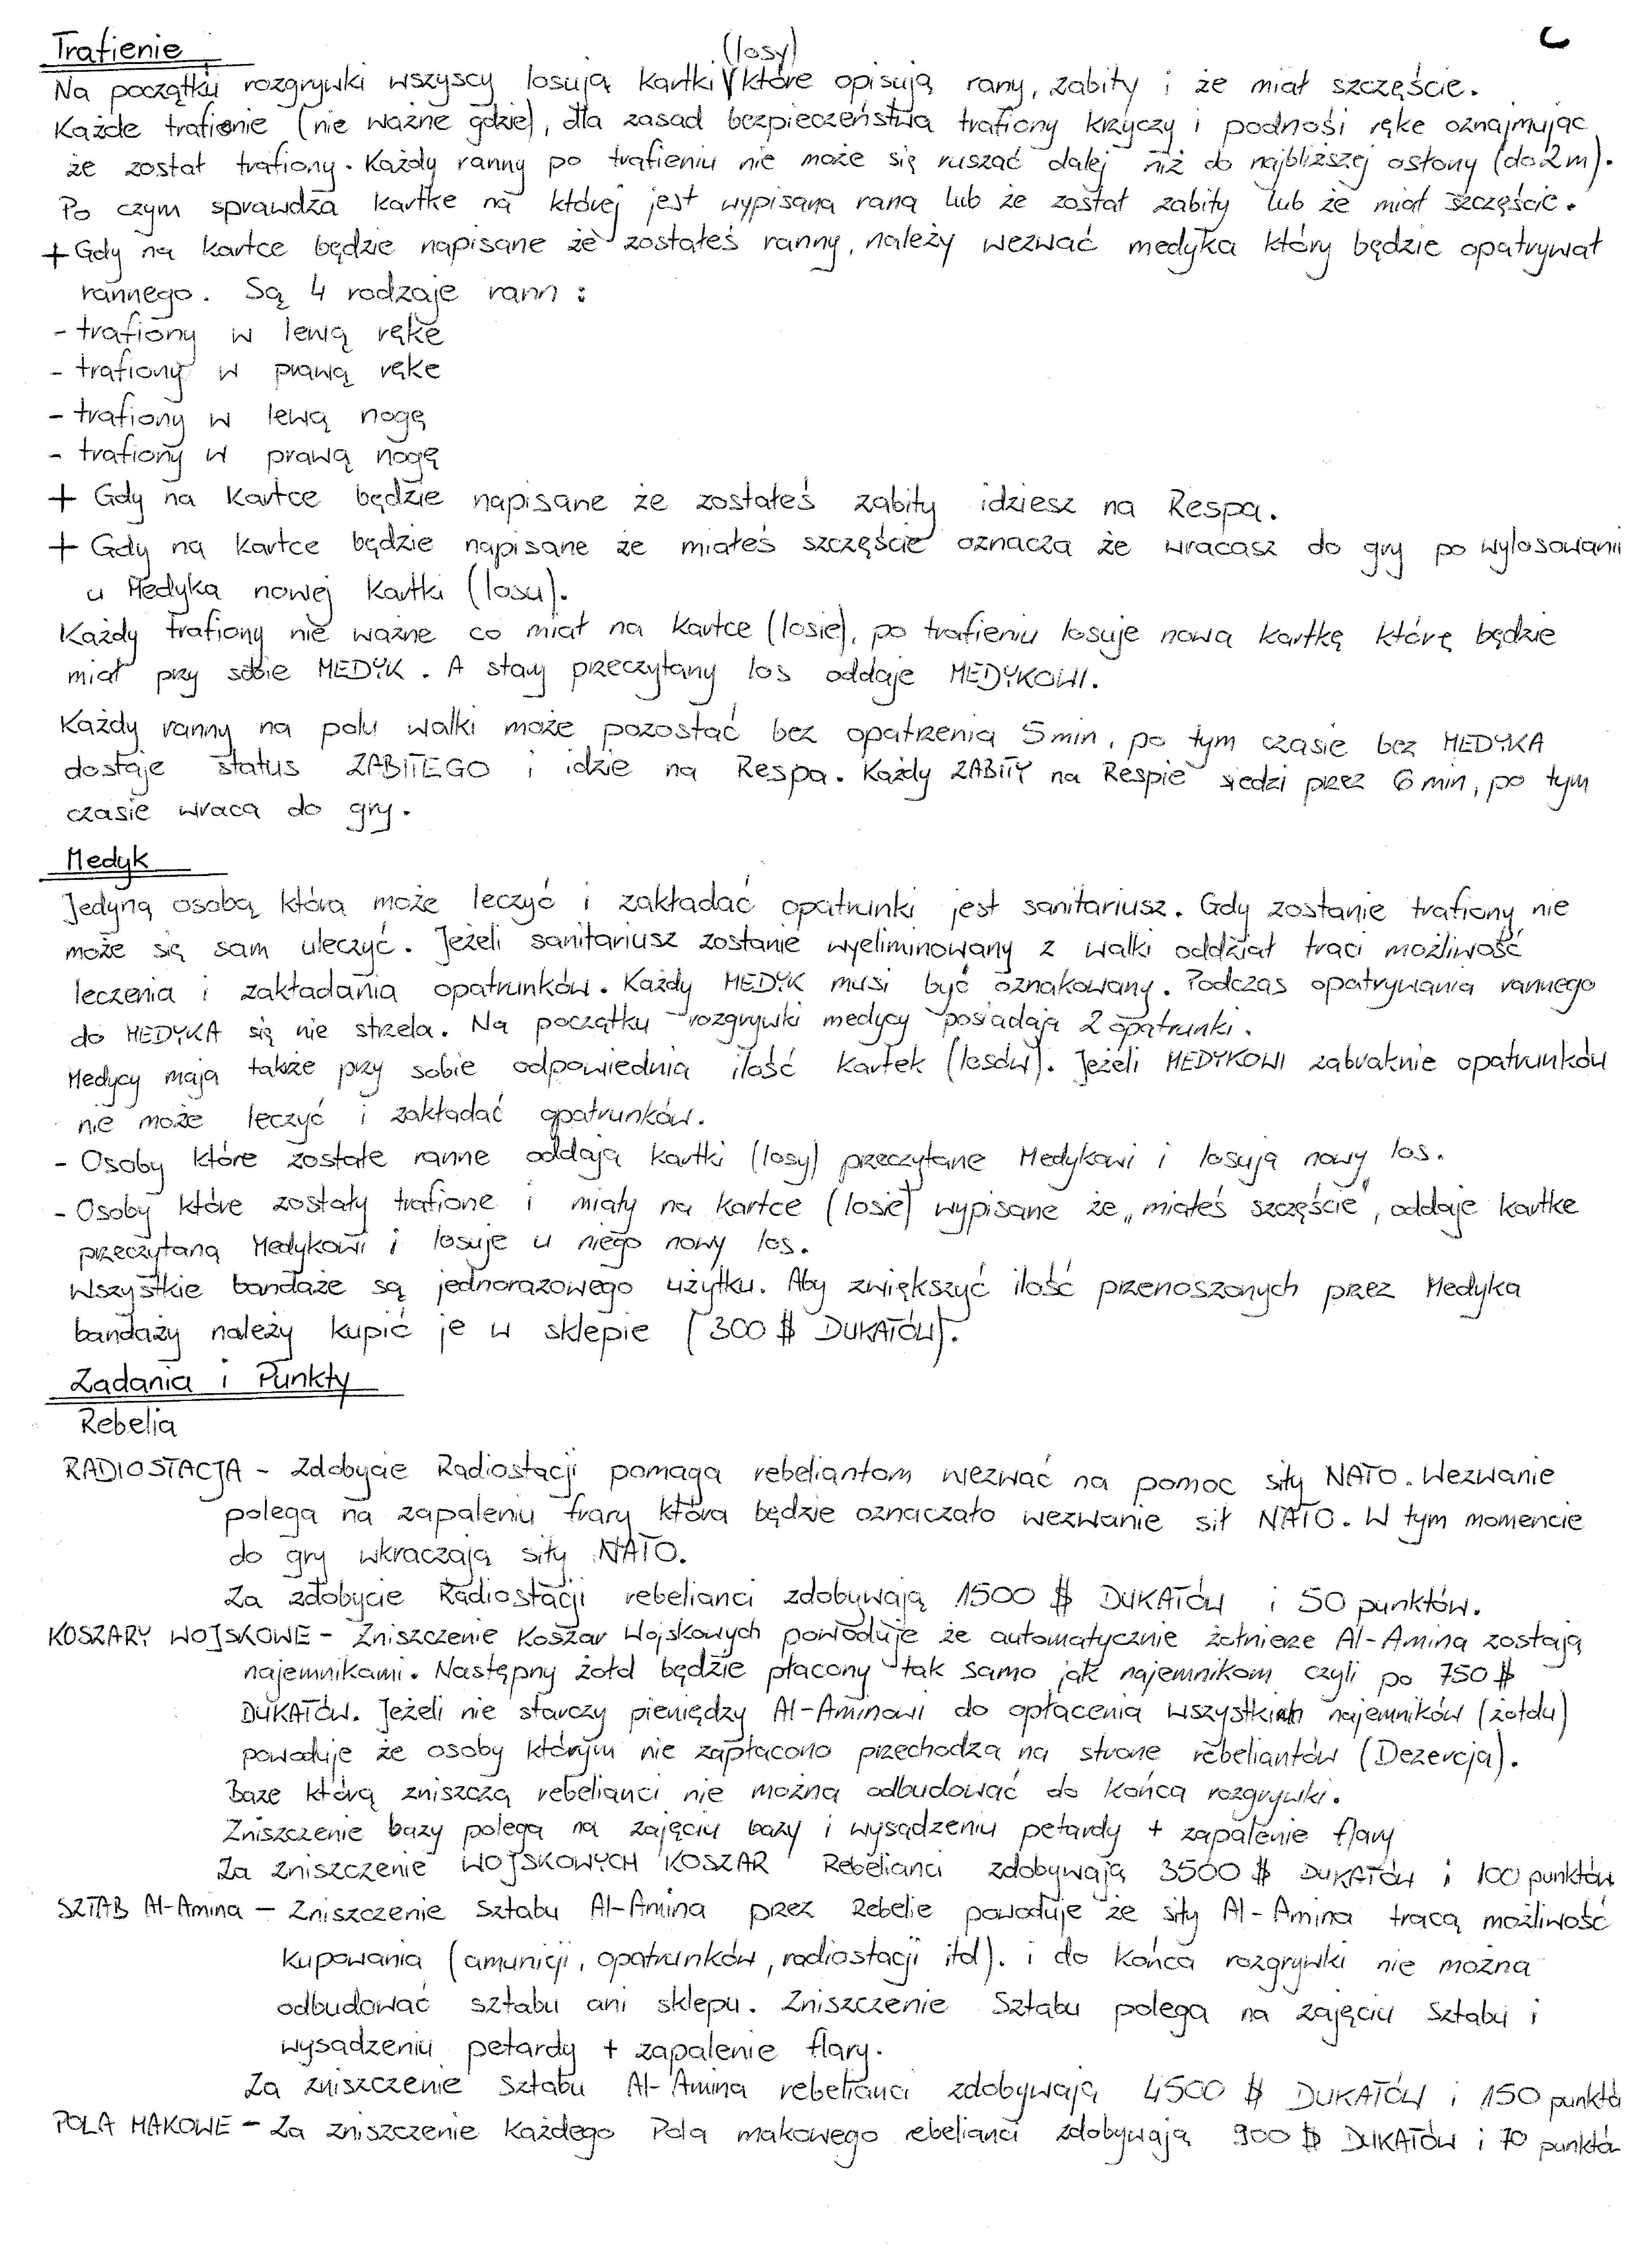 Trafienie
Na początku rozgrywki wszyscy losują kartki (losy) które opisują rany, zabity i że miał szczęście.
Każde trafienie (nie ważne gdzie), dla zasad bezpieczeństwa trafiony krzyczy i podnosi ręke oznajmując
że został trafiony. Każdy ranny po trafieniu nie może się ruszać dalej niż do najbliższej osłony (do 2m).
Po czym sprawdza kartke na której jest wypisana rana lub że został zabity lub że miał szczęście.
+ Gdy na kartce będzie napisane że zostałeś ranny, należy wezwać medyka który będzie opatrywał
rannego. Są 4 rodzaje rann :
- trafiony w lewą ręke
- trafiony w prawą ręke
- trafiony w lewą nogę
- trafiony w prawą nogę
+ Gdy na kartce będzie napisane że zostałeś zabity idziesz na Respa.
+ Gdy na kartce będzie napisane że miałeś szczęście oznacza że wracasz do gry po wylosowanii
u Medyka nowej kartki (losu).
Każdy trafiony nie ważne co miał na kartce (losie), po trafieniu losuje nowa kartkę którę będzie
miał przy sobie MEDYK. A stary przeczytany los oddaje MEDYKOWI.
Każdy ranny na polu walki może pozostać bez opatrzenia 5min, po tym czasie bez MEDYKA
dostaje status ZABITEGO i idzie na Respa. Każdy ZABITY na Respie siedzi przez 6 min, po tym
czasie wraca do gry.
Medyk
Jedyną osobą która może leczyć i zakładać opatrunki jest sanitariusz. Gdy zostanie trafiony nie
może się sam uleczyć. Jeżeli sanitariusz zostanie wyeliminowany z walki oddział traci możliwość
leczenia i zakładania opatrunków. Każdy MEDYK musi być oznakowany. Podczas opatrywania rannego
do MEDYKA się nie strzela. Na początku rozgrywki medycy posiadają 2 opatrunki.
Medycy mają także przy sobie odpowiednia ilość kartek (losów). Jeżeli MEDYKOWI zabraknie opatrunków
nie może leczyć i zakładać opatrunków.
- Osoby które zostałe ranne oddają kartki (losy) przeczytane Medykowi i losują nowy los.
- Osoby które zostały trafione i miały na kartce (losie) wypisane że „miałeś szczęście", oddaje kartke
przeczytaną Medykowi i losuje u niego nowy los.
Wszystkie bandaże są jednorazowego użytku. Aby zwiększyć ilość przenoszonych przez Medyka
bandaży należy kupić je w sklepie (300 $ DUKATÓW).
Zadania i Punkty
Rebelia
RADIOSTACJA - Zdobycie Radiostacji pomaga rebeliantom wezwać na pomoc siły NATO. Wezwanie
polega na zapaleniu frary która będzie oznaczało wezwanie sił NATO. W tym momencie
do gry wkraczają siły NATO.
Za zdobycie Radiostacji rebelianci zdobywają 1500 $ DUKATÓW i 50 punktów.
KOSZARY WOJSKOWE - Zniszczenie Koszar Wojskowych powoduje że automatycznie żołnierze Al-Amina zostają
najemnikami. Następny żołd będzie płacony tak samo jak najemnikom czyli po 750 $
DUKATÓW. Jeżeli nie starczy pieniędzy Al-Aminowi do opłacenia wszystkich najemników (żołdu)
powoduje że osoby którym nie zapłacono przechodza na strone rebeliantów (Dezercja).
Baze którą zniszczą rebelianci nie można odbudować do końca rozgrywki.
Zniszczenie bazy polega na zajęciu bazy i wysądzeniu petardy + zapalenie flary
Za zniszczenie WOJSKOWYCH KOSZAR Rebelianci zdobywają 3500 $ DUKATÓW i 100 punktów
SZTAB Al-Amina - Zniszczenie Sztabu Al-Amina przez Rebelie powoduje że siły Al-Amina tracą możliwość
kupowania (amunicji, opatrunków, radiostacji itd). i do końca rozgrywki nie można
odbudować sztabu ani sklepu. Zniszczenie Sztabu polega na zajęciu Sztabu i
wysadzeniu petardy + zapalenie flary.
Za zniszczenie Sztabu Al-Amina rebelianci zdobywają 4500 $ DUKATÓW i 150 punktó
POLA MAKOWE - Za zniszczenie każdego Pola makowego rebelianci zdobywają 900 $ DUKATÓW i 70 punktó